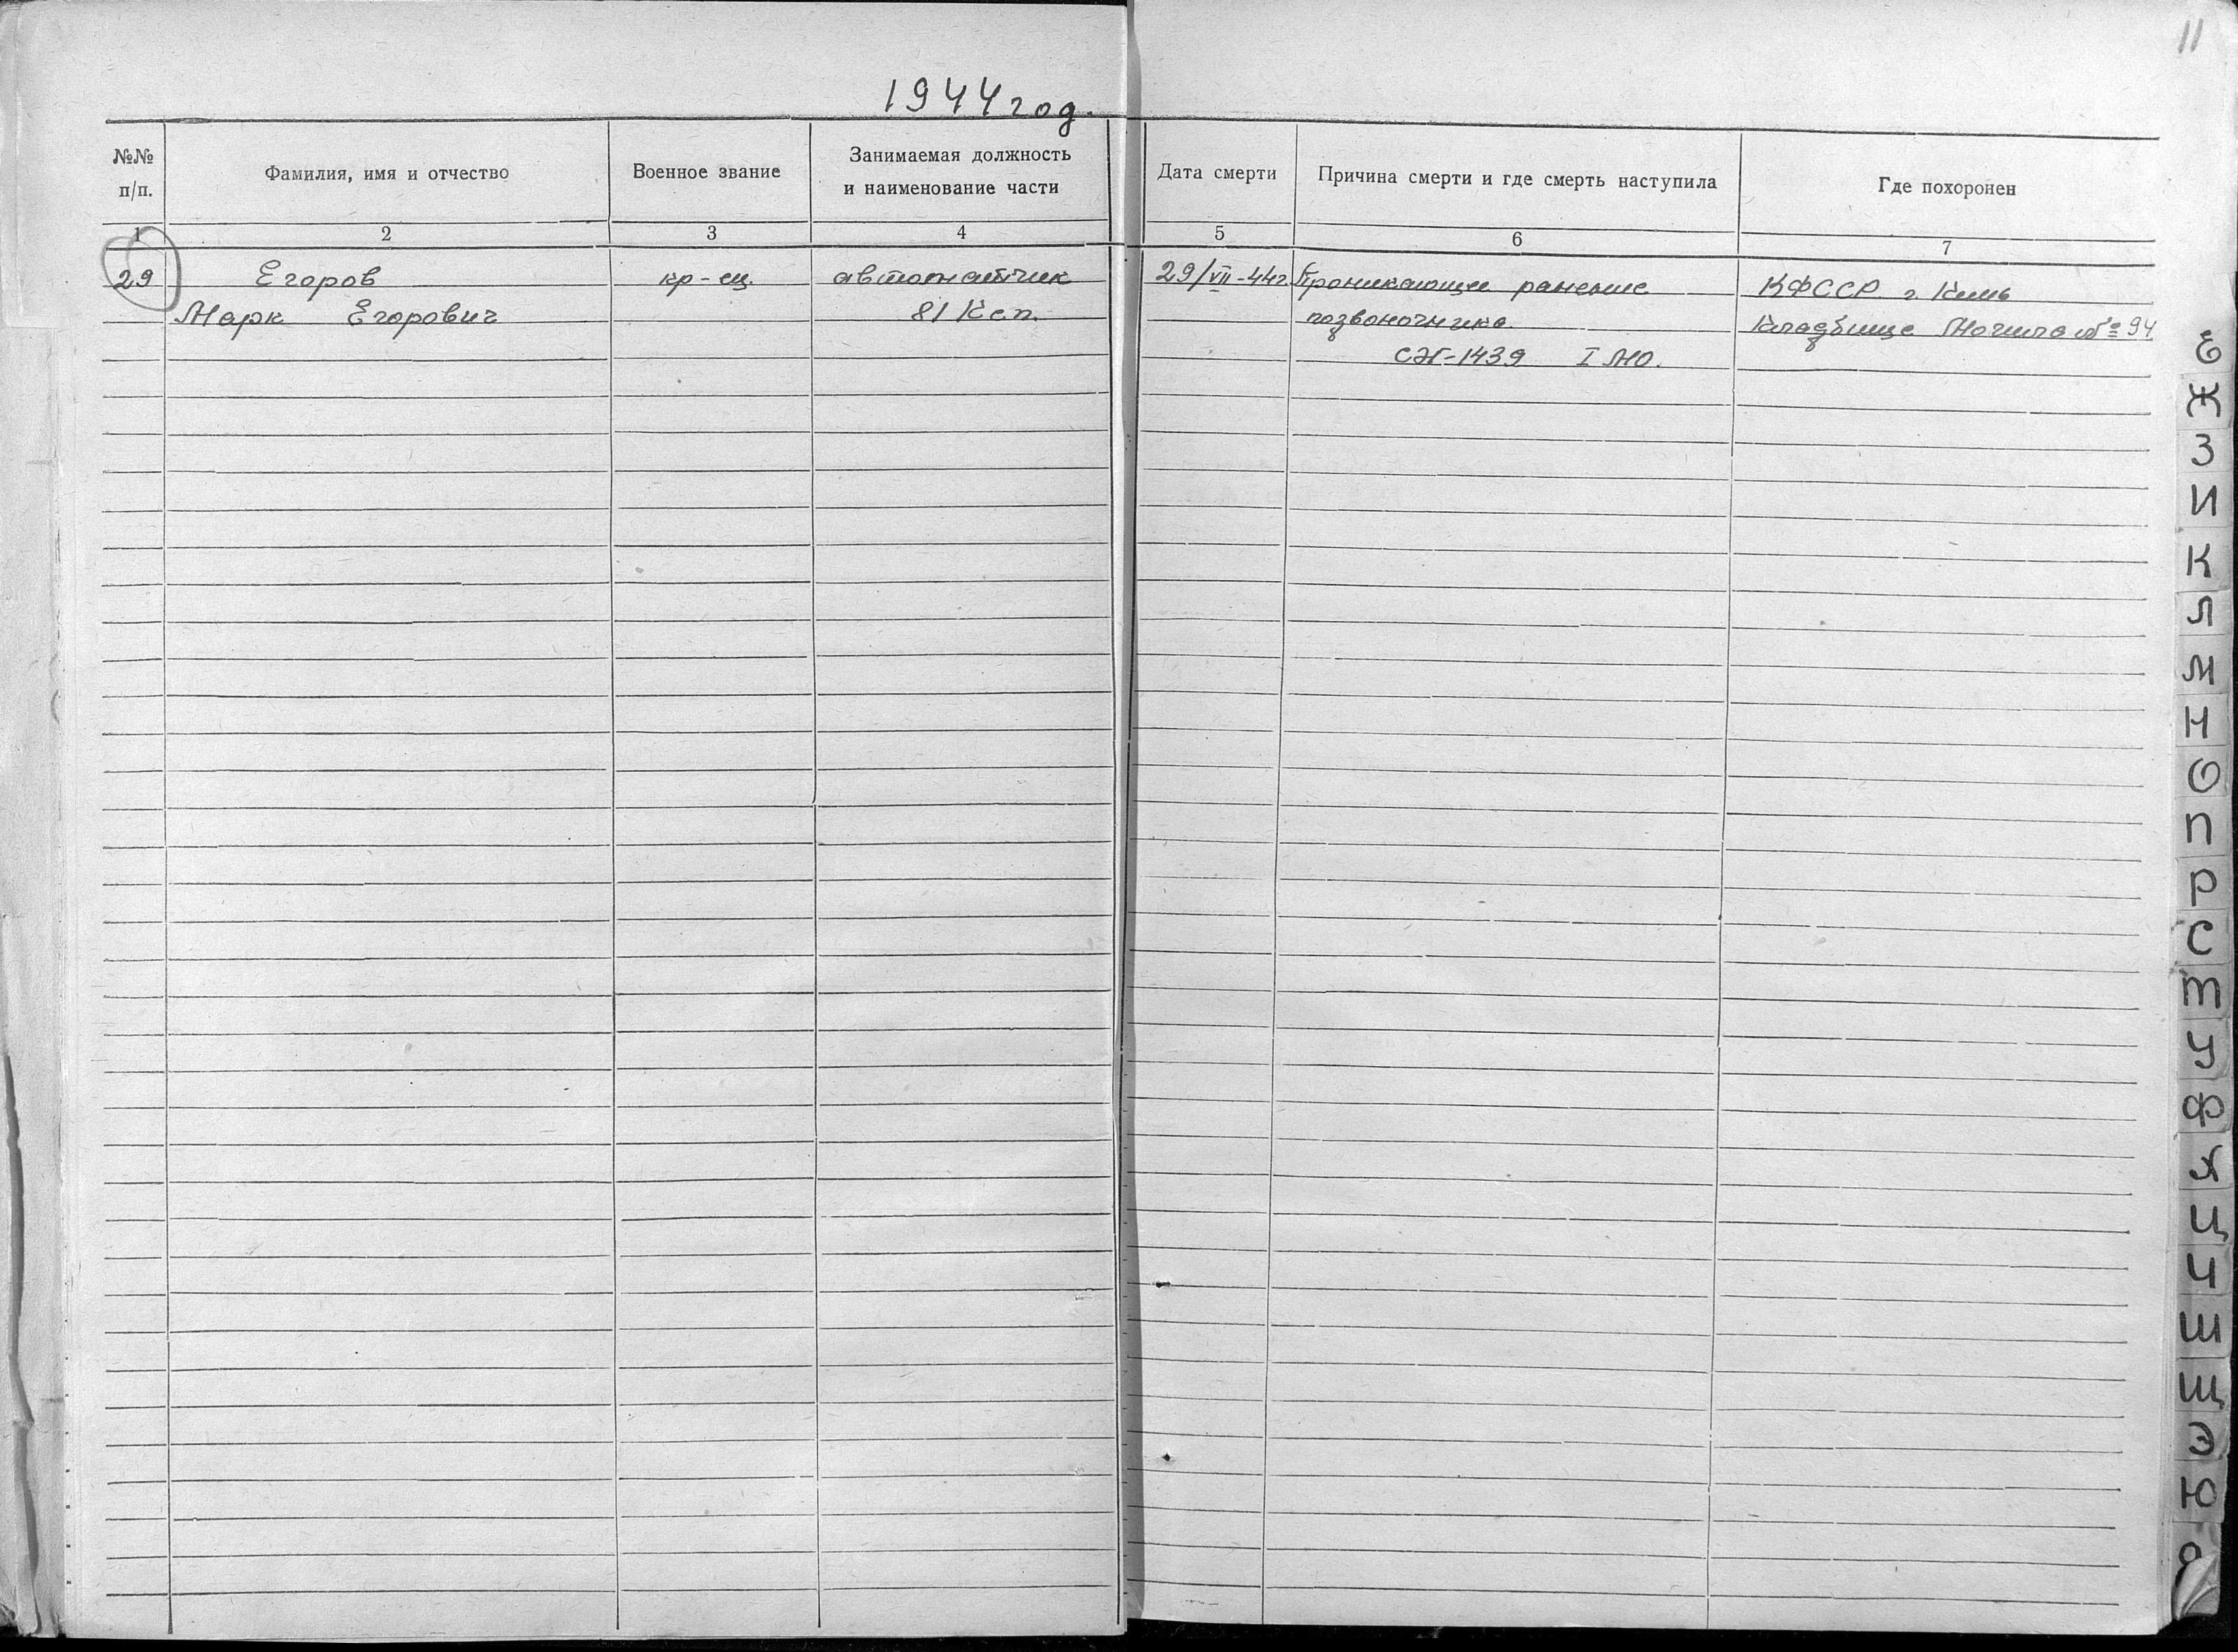 11
1944 год.
№№ п/п.
Фамилия, имя и отчество
Военное звание
Занимаемая должность
и наименование части
Дата смерти
Причина смерти и где смерть наступила
Где похоронен
1 2 3 4 5 6 7
29 Егоров кр-ец. автоматчик 29/VII-44г. Проникающее ранение КФССР г. Кемь
Марк Егорович 81 Ксп. позвоночника. Кладбище Могила № 94
СЭГ-1439 I МО.
Е
Ж
З
И
К
Л
М
Н
О
П
Р
С
Т
У
Ф
Х
Ц
Ч
Ш
Щ
Э
Ю
Я